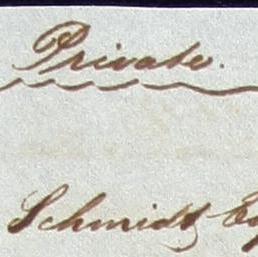 Private.
Schmidt Esq